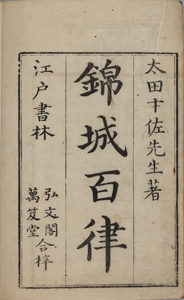 太田才佐先生著
錦城百律
江戶書林
弘文閣
萬笈堂
合梓